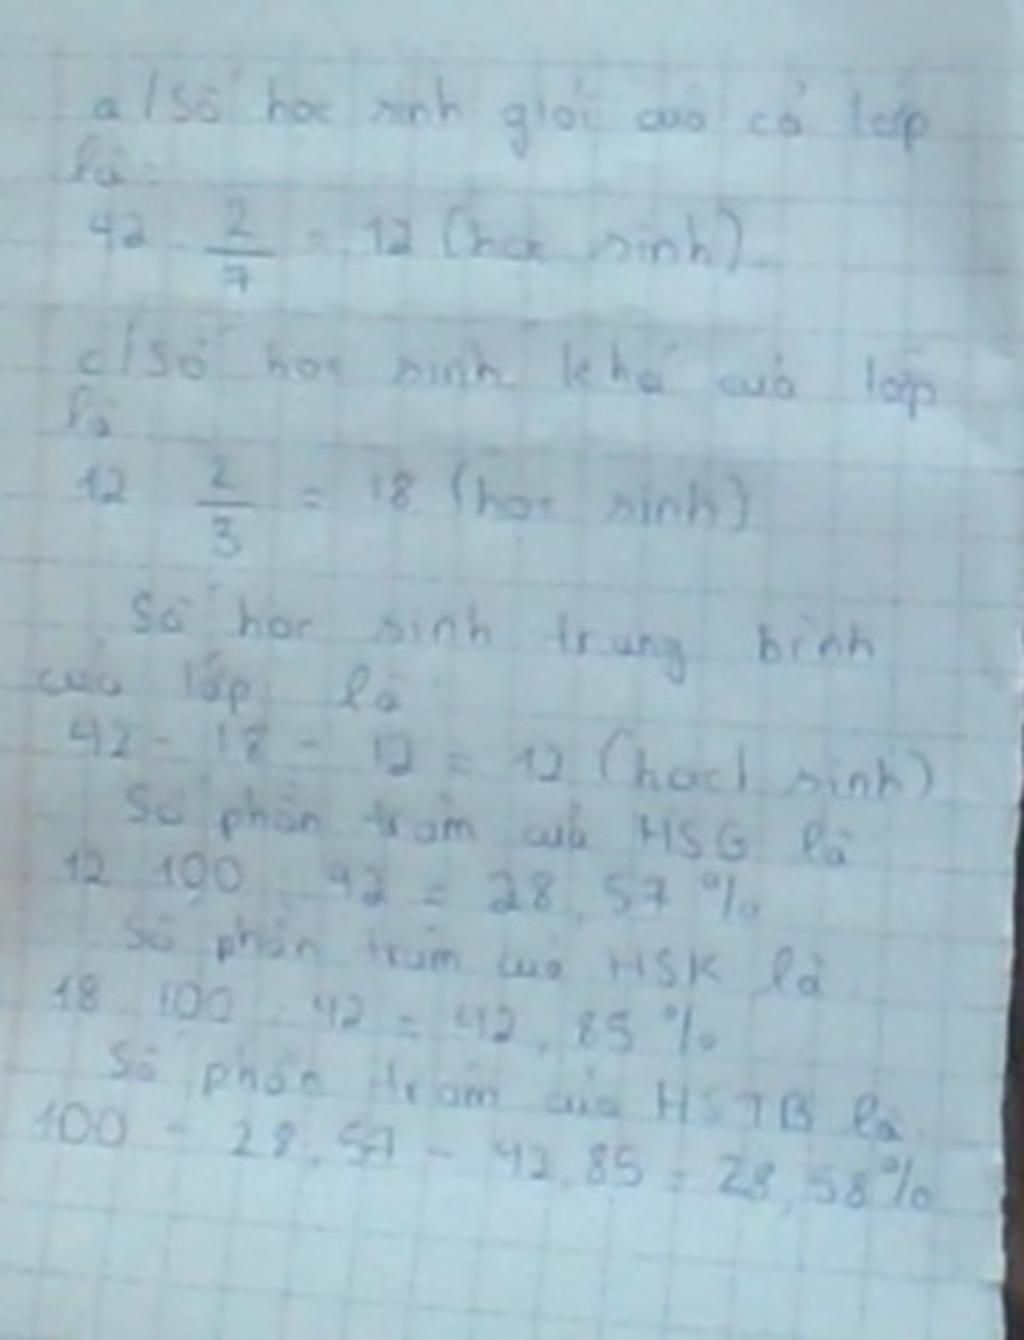 a / Số học sinh giỏi của cả lớp
là
42 . 2/7 = 12 (học sinh)
c / Số học sinh khá của lớp
là
12 2/3 = 18 (học sinh)
Số học sinh trung bình
của lớp là
42 - 18 - 12 = 12 (hoch sinh)
Số phần trăm của HSG là
12 100 42 = 28,57 %
Số phần trăm của HSK là
18 100 42 = 42,85 %
Số phần trăm của HSTB là
100 - 28,57 - 42,85 = 28,58 %